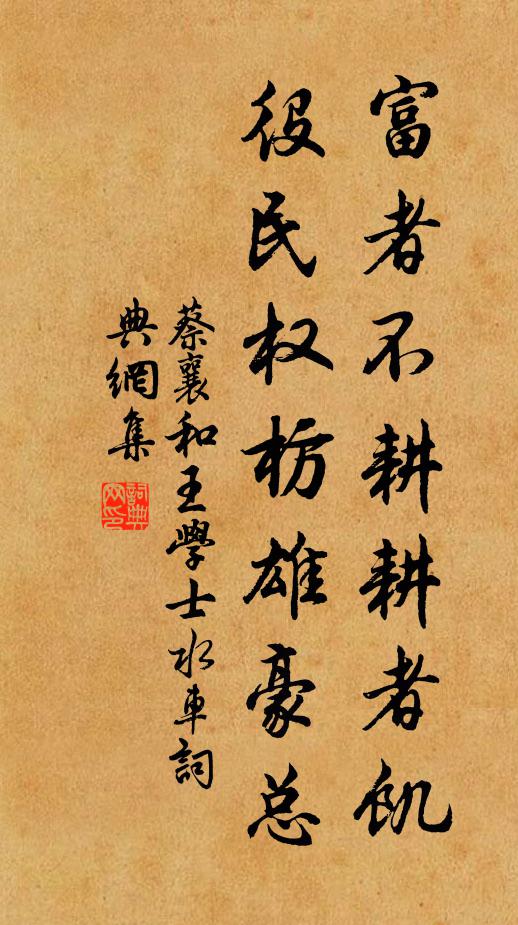 富者不耕耕者飢
役民权枋雄豪总
蔡襄和王學士水車詞
典網集
詞典網印